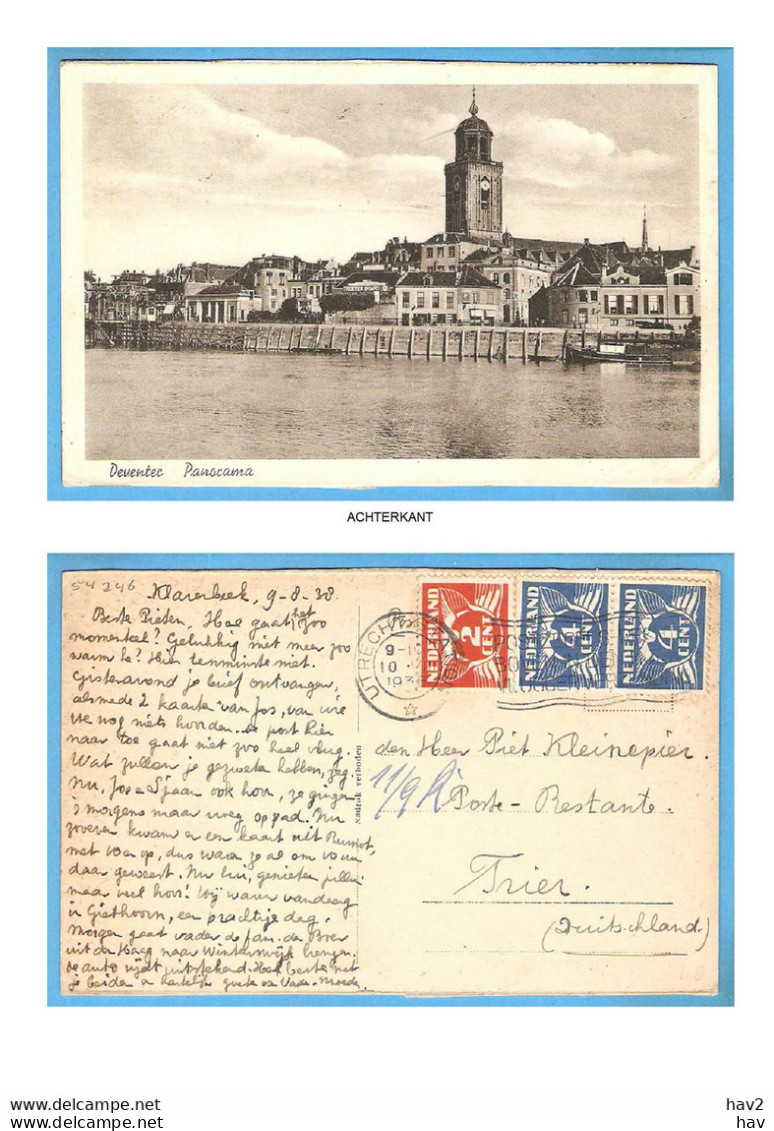 Deventer Panorama
ACHTERKANT
54 246
Klarenbeek, 9-8-38.
Beste Pieten, Hoe gaat het zoo
momenteel? Gelukkig niet meer zoo
warm hè? Hier tenminste niet.
Gisteravond je brief ontvangen,
alsmede 2 kaarten van Jos, van wie
we nog niets hoorden. de post hier
naar toe gaat niet zoo heel vlug.
Wat zullen je gezweten hebben, zeg.
Nu, Jos ook hoor, ze gingen
's morgens maar weg op pad. Nu
zoeven kwam er een kaart uit
met op, dus waren ze al om 10 uur
daar geweest. Nu lui, genieten jullie
maar veel hoor! Wij waren vandaag
in Giethoorn, een prachtige dag.
Morgen gaat vader de Jan. de Boer
uit den Haag naar Winterswijk brengen.
De auto rijdt uitstekend. Heel beste met
je beiden en hartelijke groeten Vader - Moeder.
Nadruk verboden
UTRECHT
9-
10
193
NEDERLAND
2
CENT
NEDERLAND
4
CENT
NEDERLAND
4
CENT
den Heer Piet Kleinepier.
11/9
Poste-Restante.
Trier.
(Duitschland)
hav2
hav